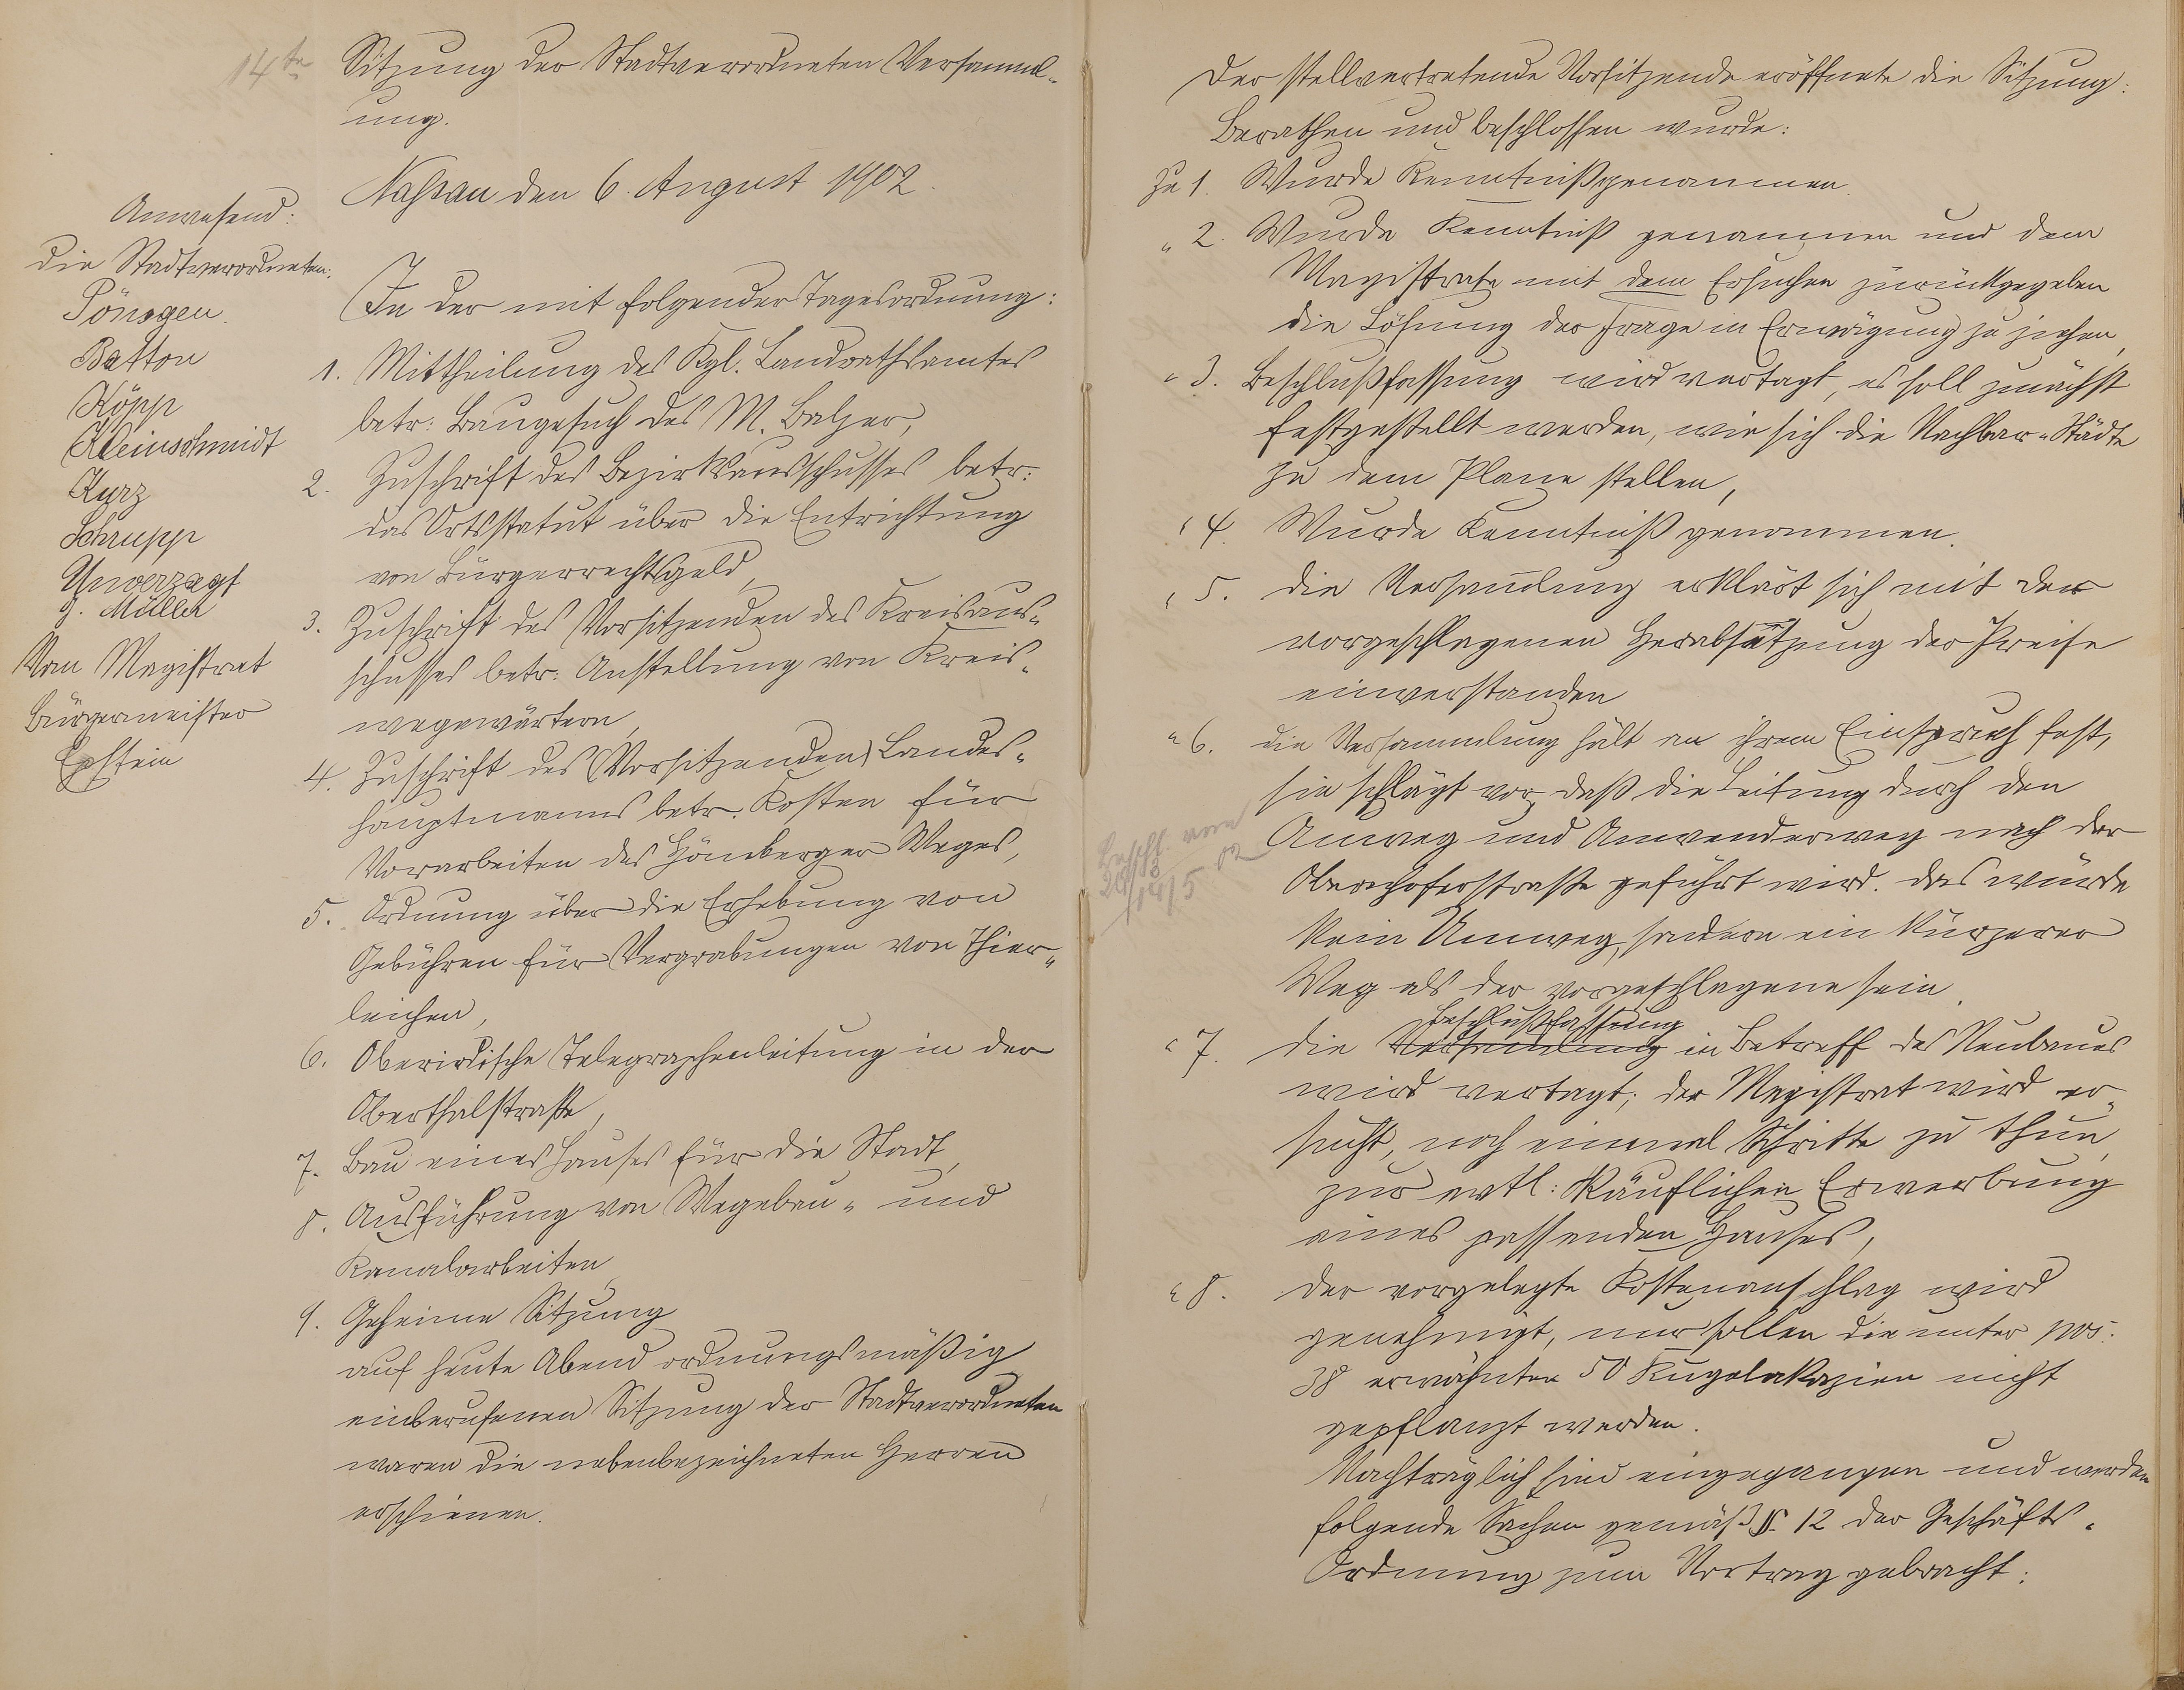 14te Sitzung der Stadtverordneten Versamml-
ung.
Nassau den 6. August 1902.
Anwesend:
Die Stadtverordneten:
Pönsgen.
Batton
Köpp
Kleinschmidt
Kurz
Schrupp
Unverzagt
J. Müller
Vom Magistrat
Bürgermeister
Epstein
In der mit folgender Tagesordnung:
1. Mittheilung des Kgl. Landrathsamtes
betr: Baugesuch des M. Balzer,
2. Zuschrift des Bezirksausschusses betr:
das Ortsstatut über die Entrichtung
von Bürgerrechtsgeld,
3. Zuschrift des Vorsitzenden des Kreisaus-
schusses betr: Anstellung von Kreis-
wegewärtern,
4. Zuschrift des (Vorsitzenden) Landes-
hauptmanns betr. Kosten für
Vorarbeiten des Hömberger Weges,
5. Ordnung über die Erhebung von
Gebühren für Vergrabungen von Thier-
leichen,
6. Oberirdische Telegraphenleitung in der
Oberthalstraße,
7. Bau eines Hauses für die Stadt,
8. Ausführung von Wegebau- und
Kanalarbeiten,
9. Geheime Sitzung
auf heute Abend ordnungsmäßig
einberufenen Sitzung der Stadtverordneten
waren die nebenbezeichneten Herren
erschienen.
Der stellvertretende Vorsitzende eröffnete die Sitzung:
Berathen und beschlossen wurde:
Zu 1. Wurde Kenntniß genommen.
" 2. Wurde Kenntniß genommen und dem
Magistrate mit dem Ersuchen zurückgegeben
die Lösung der Frage in Erwägung zu ziehen,
" 3. Beschlußfassung wird vertagt, es soll zunächst
festgestellt werden, wie sich die Nachbar-Städte
zu dem Plane stellen,
" 4. Wurde Kenntniß genommen.
" 5. Die Versammlung erklärt sich mit der
vorgeschlagenen Herabsetzung der Preise
einverstanden
" 6. die Versammlung hält an ihrem Einspruch fest,
sie schlägt vor, daß die Leitung durch den
Auweg und Anwenderweg nach der
Obernhoferstraße geführt wird. das würde
kein Umweg, sondern ein kürzerer
Weg als der vorgeschlagene sein.
Beschlußfassung
" 7. die Versammlung in Betreff des Neubaues
wird vertagt; der Magistrat wird er-
sucht, noch einmal Schritte zu thun,
zur evtl: käuflichen Erwerbung
eines passenden Hauses,
" 8. Der vorgelegte Kostenanschlag wird
genehmigt, nur sollen die unter pos.
38 erwähnten 50 Kugelakazien nicht
gepflanzt werden.
Nachträglich sind eingegangen und werden
folgende Sachen gemäß § 12 der Geschäfts-
Ordnung zum Vortrag gebracht: